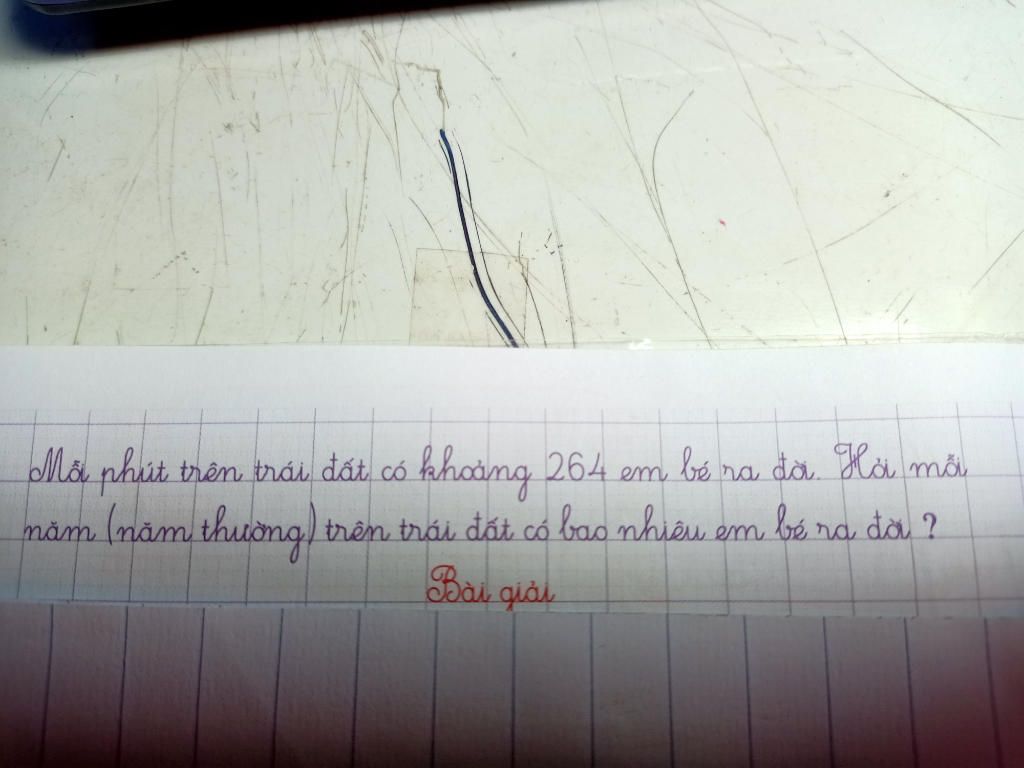 Mỗi phút trên trái đất có khoảng 264 em bé ra đời. Hỏi mỗi
năm (năm thường) trên trái đất có bao nhiêu em bé ra đời ?
Bài giải